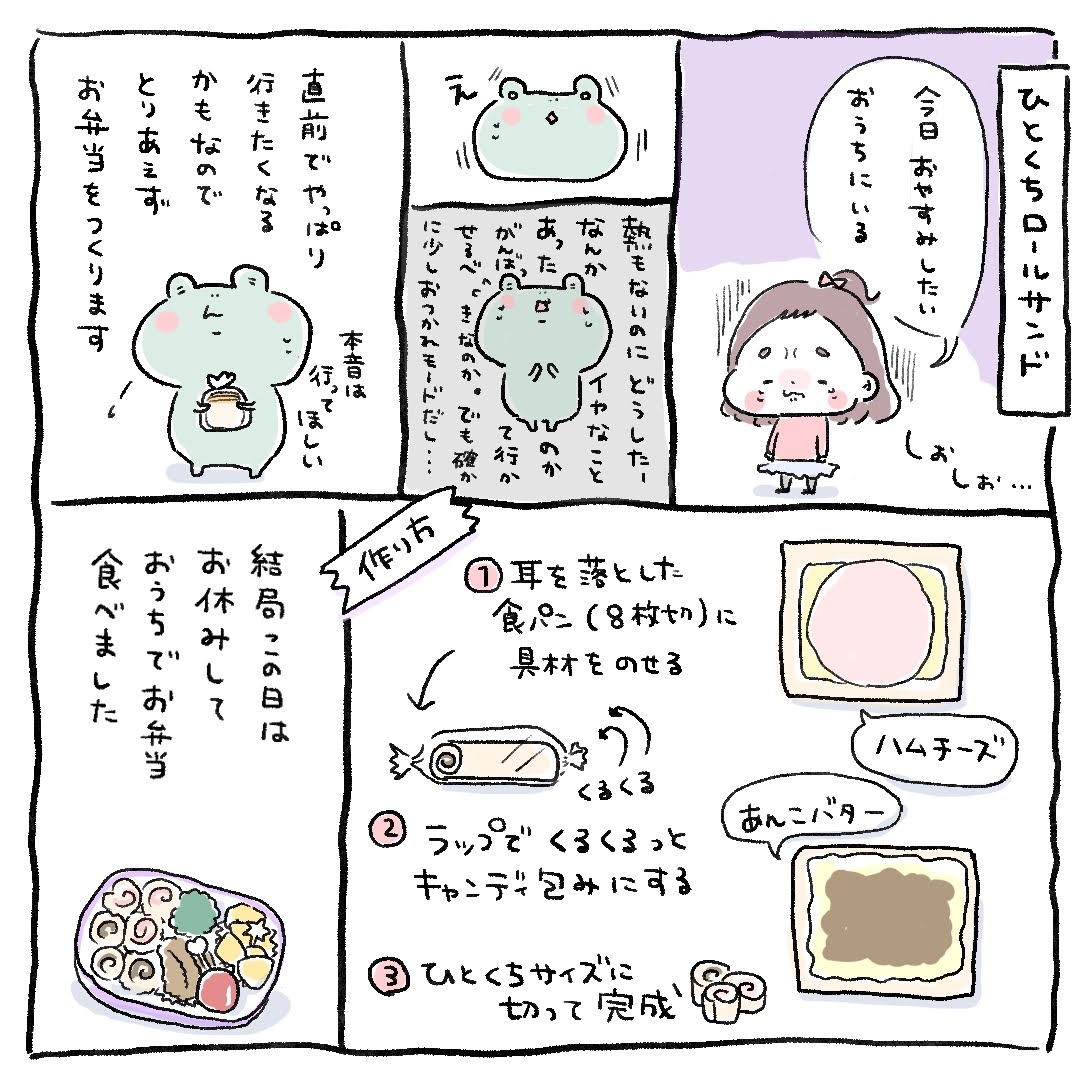 ひとくちロールサンド
今日 おやすみしたい
おうちにいる
しおしお…
え
熱もないのに どうしたー
なんか イヤなこと
あった のか
がんばって行か
せるべきなのか。でも確か
に少しおつかれモードだし…
直前でやっぱり
行きたくなる
かもなので
とりあえず
お弁当をつくります
本音は
行って
ほしい
作り方
① 耳を落とした
食パン(8枚切)に
具材をのせる
ハムチーズ
あんこバター
くるくる
② ラップでくるくるっと
キャンディ包みにする
③ ひとくちサイズに
切って完成
結局この日は
お休みして
おうちでお弁当
食べました